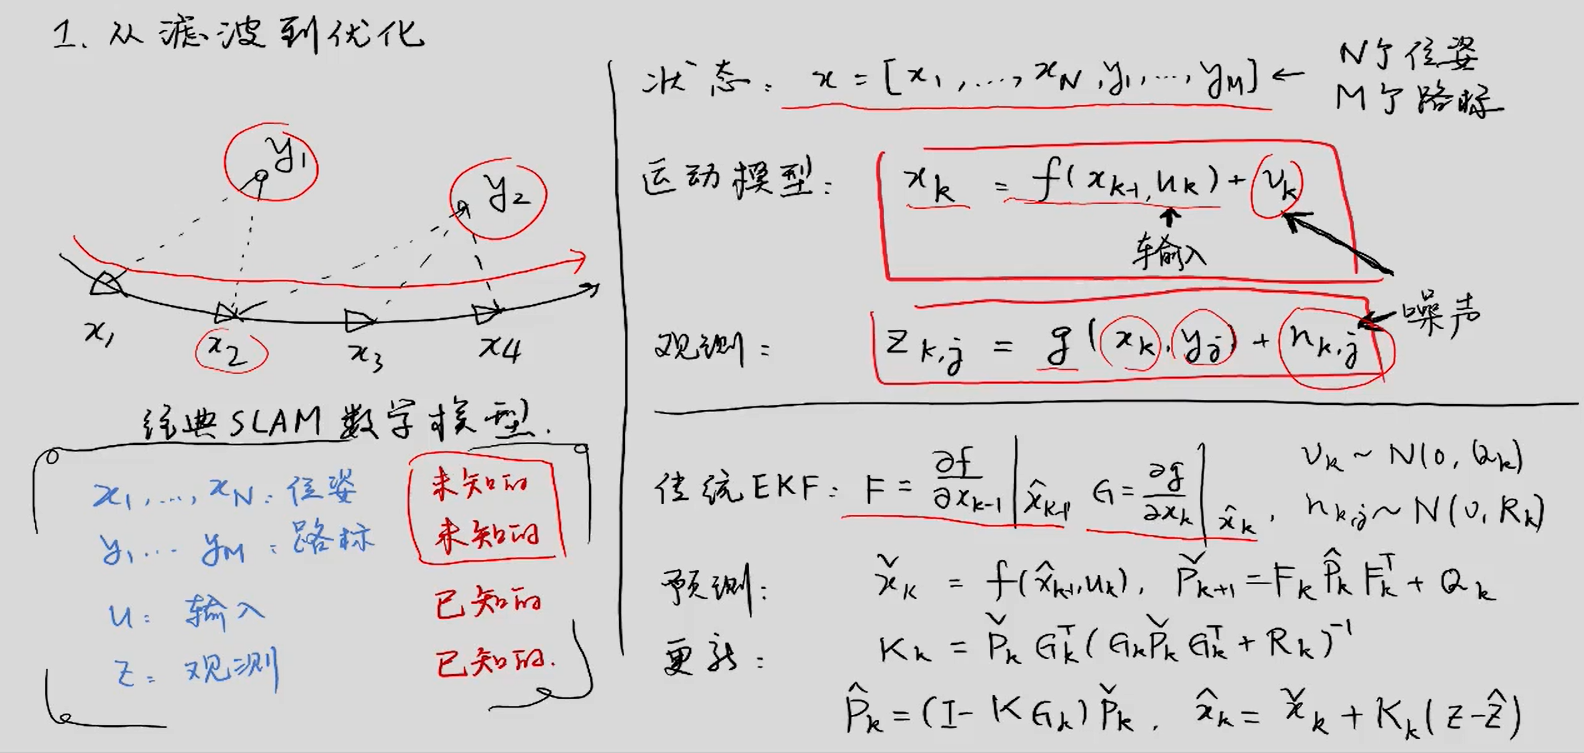 1. 从滤波到优化
y₁
y₂
x₁ x₂ x₃ x₄
经典SLAM数学模型.
x₁,…,x_N: 位姿 未知的
y₁…y_M: 路标 未知的
u: 输入 已知的
z: 观测 已知的.
状态: x = [x₁,…,x_N,y₁,…,y_M] ← N个位姿
M个路标
运动模型: x_k = f(x_{k-1},u_k)+v_k
车输入
噪声
观测: z_{k,j} = g(x_k,y_j)+n_{k,j}
传统EKF: F = ∂f/∂x_{k-1}|_{x̂_{k-1}} G = ∂g/∂x_k|_{x̂_k}, v_k ~ N(0,Q_k)
n_{k,j} ~ N(0,R_k)
预测: x̌_k = f(x̂_{k-1},u_k), P̌_{k+1} = F_k P̂_k F_k^T + Q_k
更新: K_k = P̌_k G_k^T (G_k P̌_k G_k^T + R_k)^{-1}
P̂_k = (I-KG_k)P̌_k, x̂_k = x̌_k + K_k(z-ẑ)